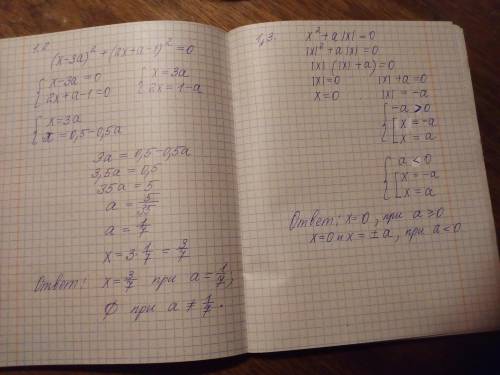 1.2.
(x-3a)² + (2x+a-1)² = 0
{ x-3a=0
2x+a-1=0
{ x=3a
2x=1-a
{ x=3a
x=0,5-0,5a
3a=0,5-0,5a
3,5a=0,5
35a=5
a=5/35
a=1/7
x=3·1/7=3/7
Ответ: x=3/7 при a=1/7,
∅ при a≠1/7.
1,3.
x²+a|x|=0
|x|²+a|x|=0
|x|(|x|+a)=0
|x|=0 |x|+a=0
x=0 |x|=-a
{ -a>0
[ x=-a
x=a
{ a<0
[ x=-a
x=a
Ответ: x=0, при a≥0
x=0 и x=±a, при a<0